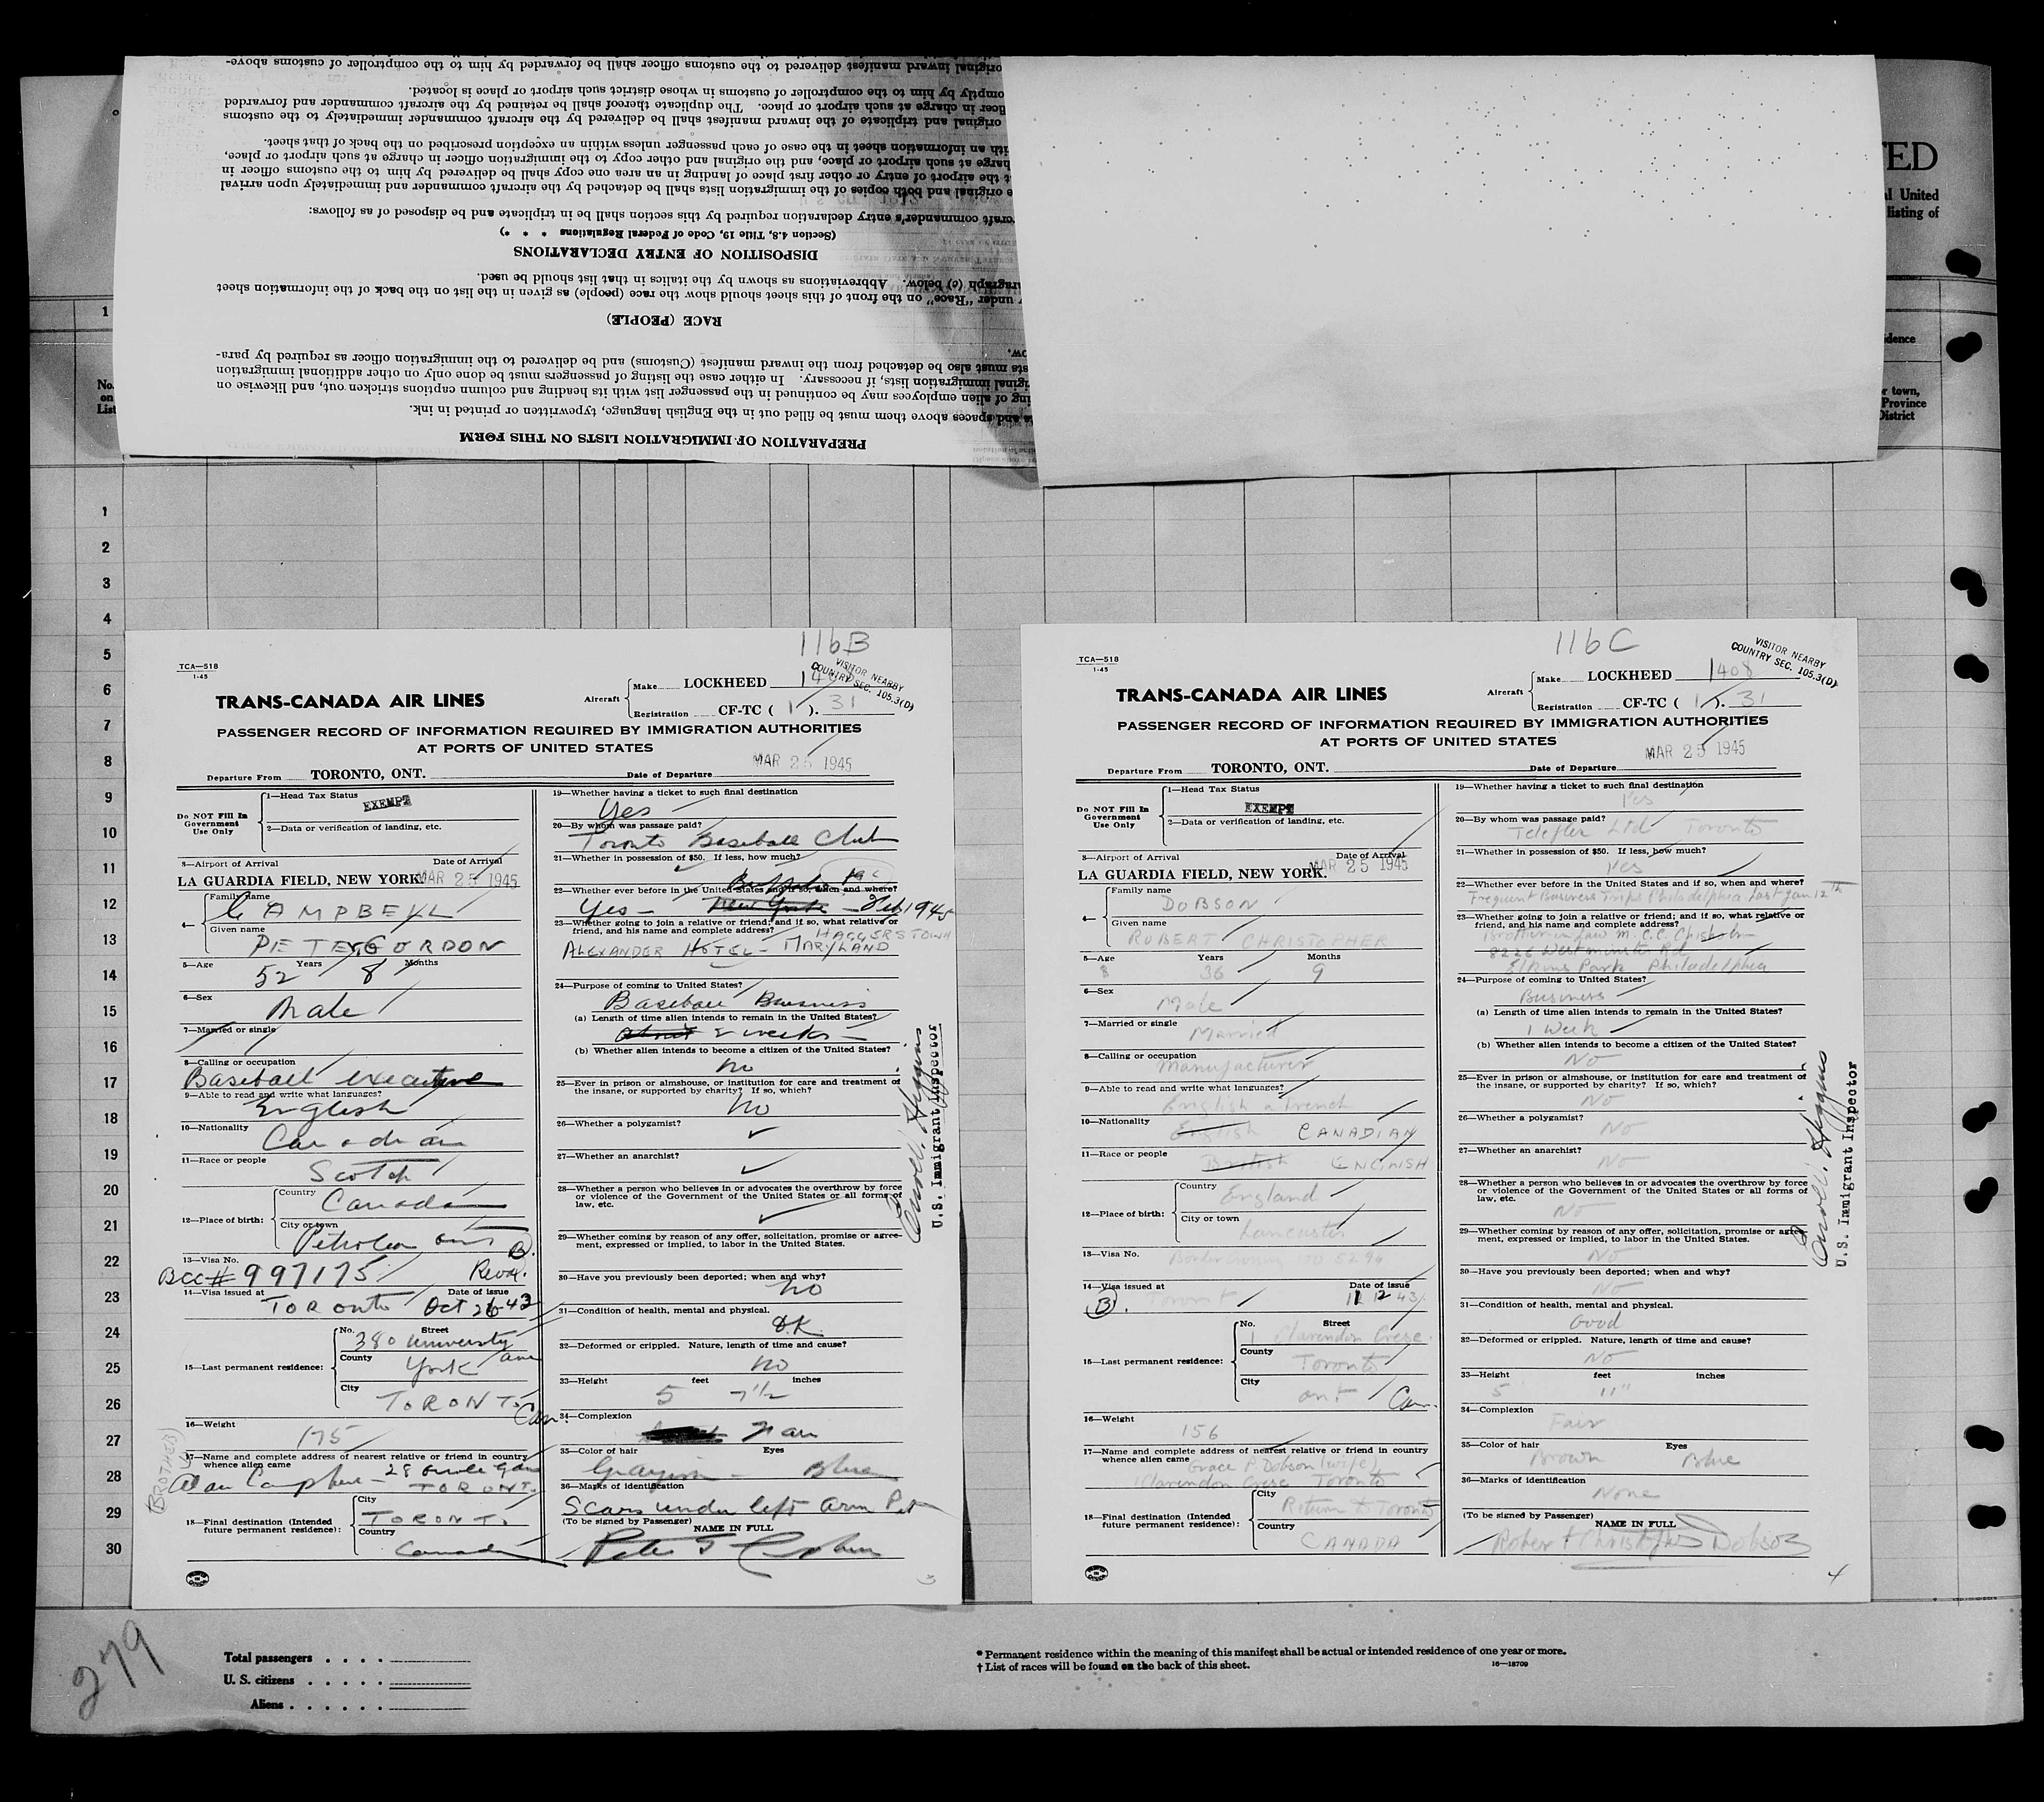 original inward manifest delivered to the customs officer shall be forwarded by him to the comptroller of customs above-
omptly by him to the comptroller of customs in whose district such airport or place is located.
ficer in charge at such airport or place. The duplicate thereof shall be retained by the aircraft commander and forwarded
original and triplicate of the inward manifest shall be delivered by the aircraft commander immediately to the customs
ith an information sheet in the case of each passenger unless within an exception prescribed on the back of that sheet.
charge at such airport or place, and the original and other copy to the immigration officer in charge at such airport or place,
t the airport of entry or other first place of landing in an area one copy shall be delivered by him to the customs officer in
e original and both copies of the immigration lists shall be detached by the aircraft commander and immediately upon arrival
craft commander's entry declaration required by this section shall be in triplicate and be disposed of as follows:
(Section 4.8, Title 19, Code of Federal Regulations * * *)
DISPOSITION OF ENTRY DECLARATIONS
ragraph (c) below. Abbreviations as shown by the italics in that list should be used.
y under "Race" on the front of this sheet should show the race (people) as given in the list on the back of the information sheet
RACE (PEOPLE)
ow.
sts must also be detached from the inward manifest (Customs) and be delivered to the immigration officer as required by para-
iginal immigration lists, if necessary. In either case the listing of passengers must be done only on other additional immigration
ng of alien employees may be continued in the passenger list with its heading and column captions stricken out, and likewise on
s and spaces above them must be filled out in the English language, typewritten or printed in ink.
PREPARATION OF IMMIGRATION LISTS ON THIS FORM
TED
al United
listing of
idence
r town,
Province
District
No.
on
List
1
1
2
3
4
5
6
7
8
9
10
11
12
13
14
15
16
17
18
19
20
21
22
23
24
25
26
27
28
29
30
116B
TCA—518
1-45
VISITOR NEARBY
COUNTRY SEC. 105.3(D)
TRANS-CANADA AIR LINES
Aircraft
Make LOCKHEED
Registration CF-TC ( 1 ). 31
PASSENGER RECORD OF INFORMATION REQUIRED BY IMMIGRATION AUTHORITIES
AT PORTS OF UNITED STATES
Departure From TORONTO, ONT. Date of Departure MAR 25 1945
Do NOT Fill In
Government
Use Only
1—Head Tax Status EXEMPT
2—Data or verification of landing, etc.
3—Airport of Arrival Date of Arrival
LA GUARDIA FIELD, NEW YORK. MAR 25 1945
4— Family name
CAMPBELL
Given name
PETER GORDON
5—Age Years Months
52 8
6—Sex
Male
7—Married or single
8—Calling or occupation
Baseball executive
9—Able to read and write what languages?
English
10—Nationality
Canadian
11—Race or people
Scotch
12—Place of birth:
Country
Canada
City or town
Petrolea Ont
13—Visa No.
BCC# 997175 B.
14—Visa issued at Date of issue
Toronto Oct 26-43
15—Last permanent residence:
No. Street
380 University Ave
County
York
City
TORONTO Can.
16—Weight
175
(BROTHER)
17—Name and complete address of nearest relative or friend in country
whence alien came
TORONTO
18—Final destination (Intended
future permanent residence):
City
TORONTO
Country
Canada
19—Whether having a ticket to such final destination
Yes
20—By whom was passage paid?
Toronto Baseball Club
21—Whether in possession of $50. If less, how much?
Buffalo
22—Whether ever before in the United States and if so, when and where?
Yes - New York - Feb 1945
23—Whether going to join a relative or friend; and if so, what relative or
friend, and his name and complete address?
HAGGERSTOWN
ALEXANDER HOTEL - MARYLAND
24—Purpose of coming to United States?
Baseball Business
(a) Length of time alien intends to remain in the United States?
about 2 weeks
(b) Whether alien intends to become a citizen of the United States?
no
25—Ever in prison or almshouse, or institution for care and treatment of
the insane, or supported by charity? If so, which?
no
26—Whether a polygamist?
27—Whether an anarchist?
28—Whether a person who believes in or advocates the overthrow by force
or violence of the Government of the United States or all forms of
law, etc.
29—Whether coming by reason of any offer, solicitation, promise or agree-
ment, expressed or implied, to labor in the United States.
30—Have you previously been deported; when and why?
no
31—Condition of health, mental and physical.
O.K.
32—Deformed or crippled. Nature, length of time and cause?
no
33—Height feet inches
5 7½
34—Complexion
35—Color of hair Eyes
Grayish - Blue
36—Marks of identification
Scars under left arm Pit
(To be signed by Passenger) NAME IN FULL
U.S. Immigrant Inspector
3
116C
TCA—518
1-45
VISITOR NEARBY
COUNTRY SEC. 105.3(D)
TRANS-CANADA AIR LINES
Aircraft
Make LOCKHEED 1408
Registration CF-TC ( 1 ). 31
PASSENGER RECORD OF INFORMATION REQUIRED BY IMMIGRATION AUTHORITIES
AT PORTS OF UNITED STATES
Departure From TORONTO, ONT. Date of Departure MAR 25 1945
Do NOT Fill In
Government
Use Only
1—Head Tax Status EXEMPT
2—Data or verification of landing, etc.
3—Airport of Arrival Date of Arrival
LA GUARDIA FIELD, NEW YORK. MAR 25 1945
4— Family name
DOBSON
Given name
ROBERT CHRISTOPHER
5—Age Years Months
36 9
6—Sex
Male
7—Married or single
Married
8—Calling or occupation
Manufacturer
9—Able to read and write what languages?
English & French
10—Nationality
English CANADIAN
11—Race or people
British ENGLISH
12—Place of birth:
Country
England
City or town
Lancaster
13—Visa No.
14—Visa issued at Date of issue
(B). Toronto 11 12 43
15—Last permanent residence:
No. Street
1 Clarendon Cresc.
County
Toronto
City
Ont. Can.
16—Weight
156
17—Name and complete address of nearest relative or friend in country
whence alien came Grace P. Dobson (wife)
1 Clarendon Cresc Toronto
18—Final destination (Intended
future permanent residence):
City
Return to Toronto
Country
CANADA
19—Whether having a ticket to such final destination
Yes
20—By whom was passage paid?
Teleflex Ltd Toronto
21—Whether in possession of $50. If less, how much?
Yes
22—Whether ever before in the United States and if so, when and where?
Frequent Business Trips Philadelphia Last Jan. 12th
23—Whether going to join a relative or friend; and if so, what relative or
friend, and his name and complete address?
Brother in law M. C. C. Chisholm
8226 Westminster Rd
Elkins Park Philadelphia
24—Purpose of coming to United States?
Business
(a) Length of time alien intends to remain in the United States?
1 Week
(b) Whether alien intends to become a citizen of the United States?
No
25—Ever in prison or almshouse, or institution for care and treatment of
the insane, or supported by charity? If so, which?
No
26—Whether a polygamist?
No
27—Whether an anarchist?
No
28—Whether a person who believes in or advocates the overthrow by force
or violence of the Government of the United States or all forms of
law, etc.
No
29—Whether coming by reason of any offer, solicitation, promise or agree-
ment, expressed or implied, to labor in the United States.
No
30—Have you previously been deported; when and why?
No
31—Condition of health, mental and physical.
Good
32—Deformed or crippled. Nature, length of time and cause?
No
33—Height feet inches
5 11"
34—Complexion
Fair
35—Color of hair Eyes
Brown Blue
36—Marks of identification
None
(To be signed by Passenger) NAME IN FULL
Robert Christopher Dobson
U.S. Immigrant Inspector
4
279
Total passengers . . . .
U. S. citizens . . . . .
Aliens . . . . . .
* Permanent residence within the meaning of this manifest shall be actual or intended residence of one year or more.
† List of races will be found on the back of this sheet. 16—18709